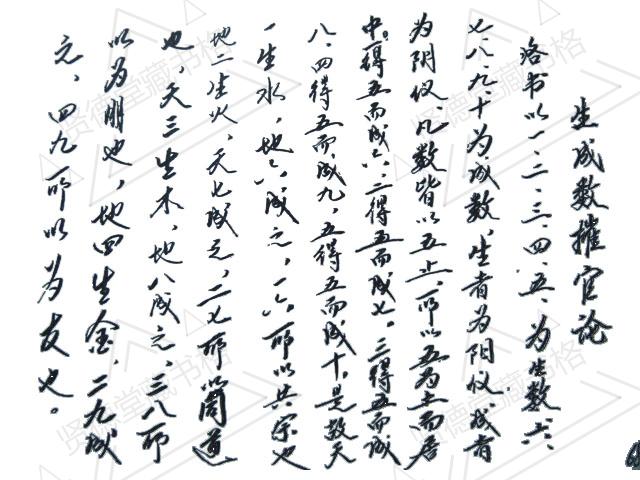 生成数摧官论
洛书以一、二、三、四、五、为生数、六、
七、八、九、十为成数，生者为阳仪、成者
为阴仪、凡数皆以五止，所以五为土而居
中。一得五而成六、二得五而成七。三得五而成
八、四得五而成九，五得五而成十。是数天
一生水，地六成之，一六所以共宗也
地二生火、天七成之，二七所以同道
也，天三生木，地八成之，三八所
以为朋也，地四生金、二九成
之、四九所以为友也。
贤德堂藏书格